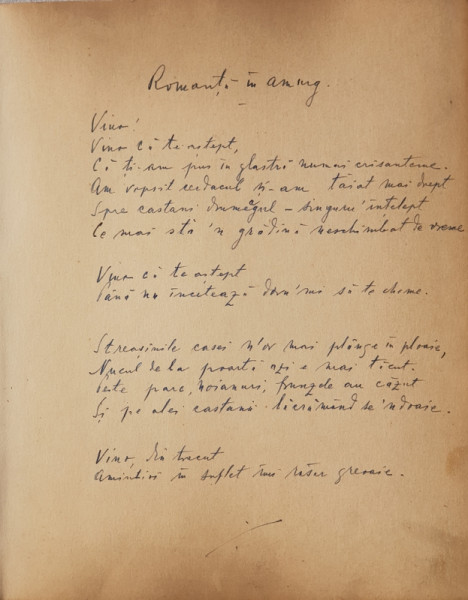 Romanță în amurg.
Vino!
Vino că te aștept,
Că ți-am pus în glastră numai crisanteme.
Am vopsit cerdacul și-am tăiat mai drept
Spre castani drumeagul – singuru' înțelept
Ce mai stă 'n grădină neschimbat de vreme
Vino că te aștept
Până nu încetează doru'mi să te cheme.
Streașinile casei n'or mai plânge în ploaie,
Nucul de la poartă azi e mai tăcut.
Peste parc, noianuri, frunzele au căzut
Și pe alei castanii lăcrămând se 'ndoaie.
Vino, din trecut
Amintiri în suflet îmi răsar greoaie.